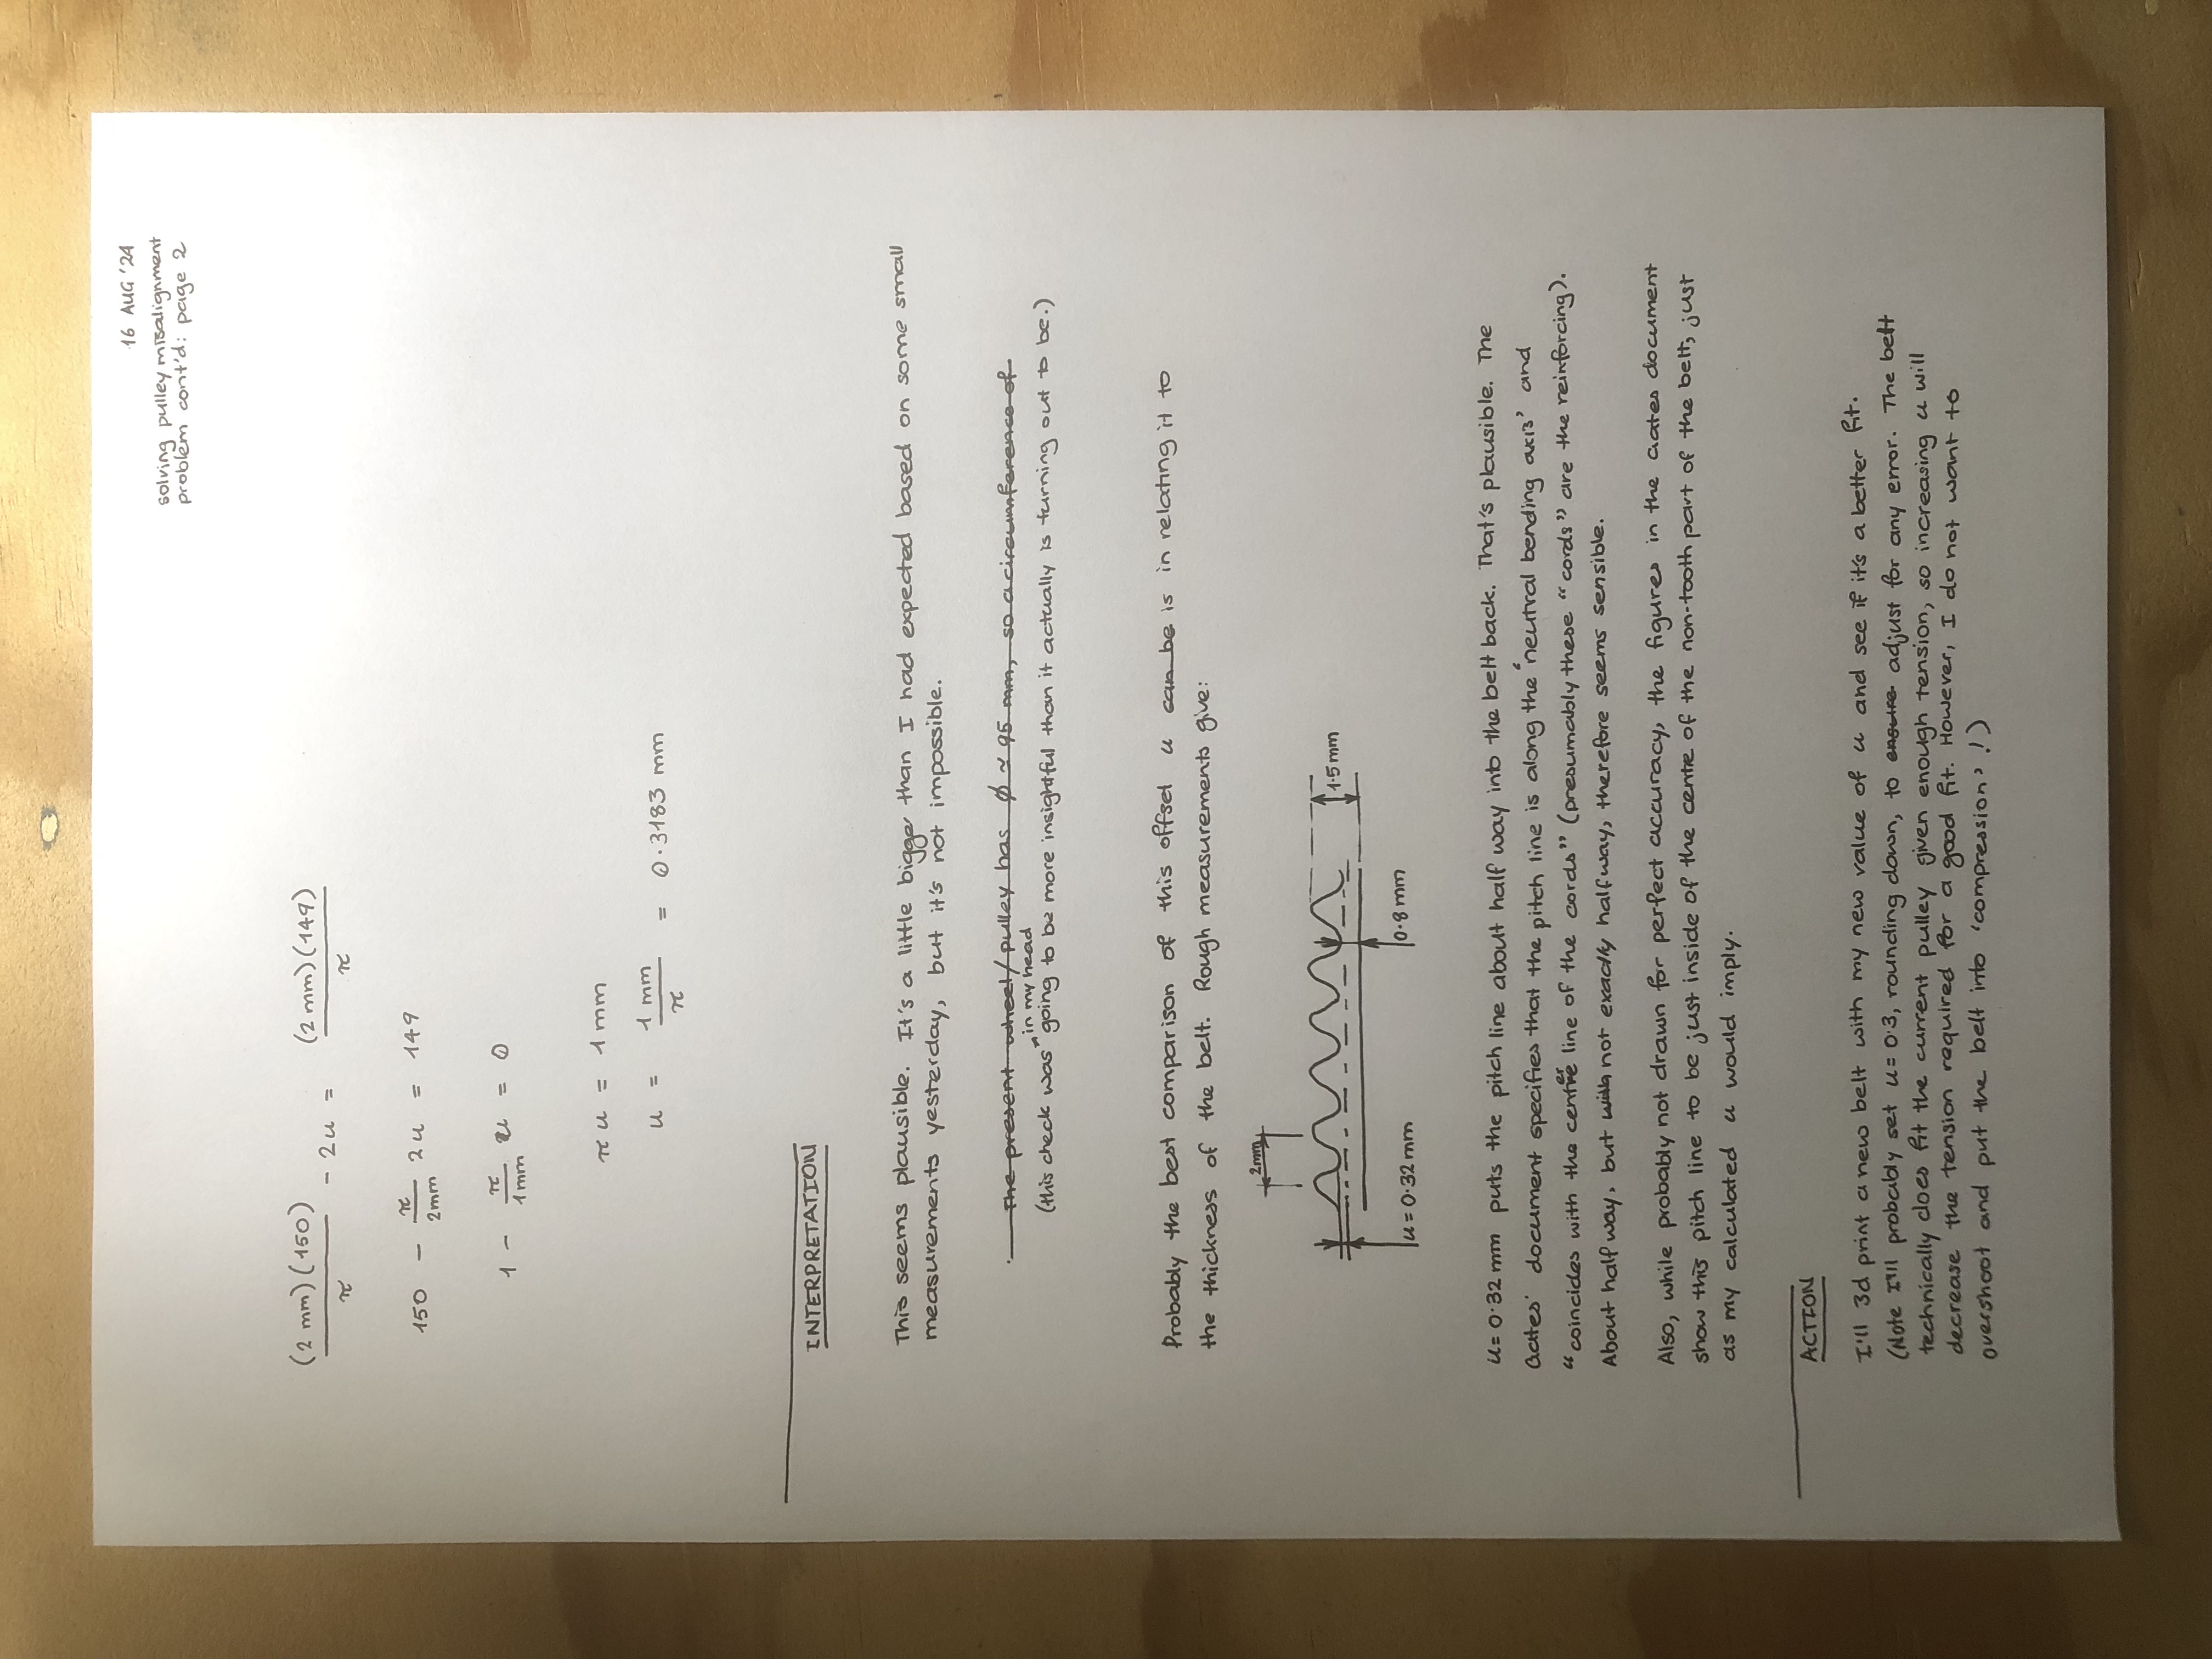 16 AUG '24
solving pulley misalignment
problem cont'd: page 2
(2 mm)(150)/π - 2u = (2 mm)(149)/π
150 - π/2mm 2u = 149
1 - π/1mm u = 0
πu = 1mm
u = 1 mm/π = 0.3183 mm
INTERPRETATION
This seems plausible. It's a little bigger than I had expected based on some small
measurements yesterday, but it's not impossible.
The present wheel/pulley has ϕ ~ 95 mm, so a circumference of
in my head
(this check was going to be more insightful than it actually is turning out to be.)
Probably the best comparison of this offset u can be is in relating it to
the thickness of the belt. Rough measurements give:
2mm
1.5 mm
u = 0.32 mm
0.8 mm
u = 0.32 mm puts the pitch line about half way into the belt back. That's plausible. The
Gates' document specifies that the pitch line is along the 'neutral bending axis' and
"coincides with the center line of the cords" (presumably these "cords" are the reinforcing).
About half way, but with not exactly halfway, therefore seems sensible.
Also, while probably not drawn for perfect accuracy, the figures in the Gates document
show this pitch line to be just inside of the centre of the non-tooth part of the belt, just
as my calculated u would imply.
ACTION
I'll 3d print a new belt with my new value of u and see if it's a better fit.
(Note I'll probably set u = 0.3, rounding down, to ensure adjust for any error. The belt
technically does fit the current pulley given enough tension, so increasing u will
decrease the tension required for a good fit. However, I do not want to
overshoot and put the belt into 'compression'!)